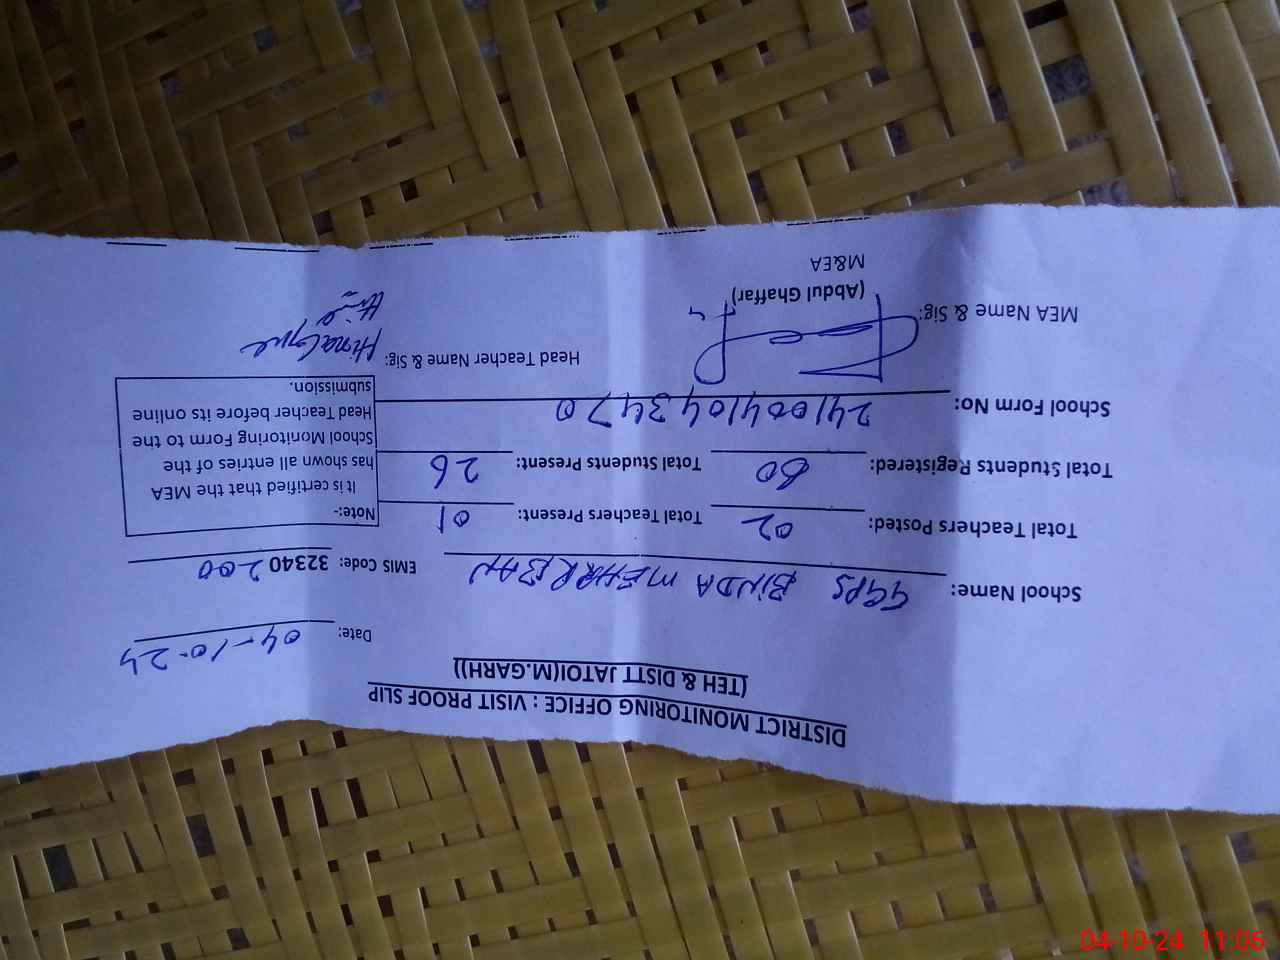 DISTRICT MONITORING OFFICE : VISIT PROOF SLIP
(TEH & DISTT JATOI(M.GARH))
Date: 04-10-24
School Name: GGPS BINDA MEHARBAN EMIS Code: 32340200
Total Teachers Posted: 02 Total Teachers Present: 01
Total Students Registered: 60 Total Students Present: 26
School Form No: 2410041043470
Note:-
It is certified that the MEA
has shown all entries of the
School Monitoring Form to the
Head Teacher before its online
submission.
MEA Name & Sig:
(Abdul Ghaffar)
M&EA
Head Teacher Name & Sig: Hina
04-10-24 11:06